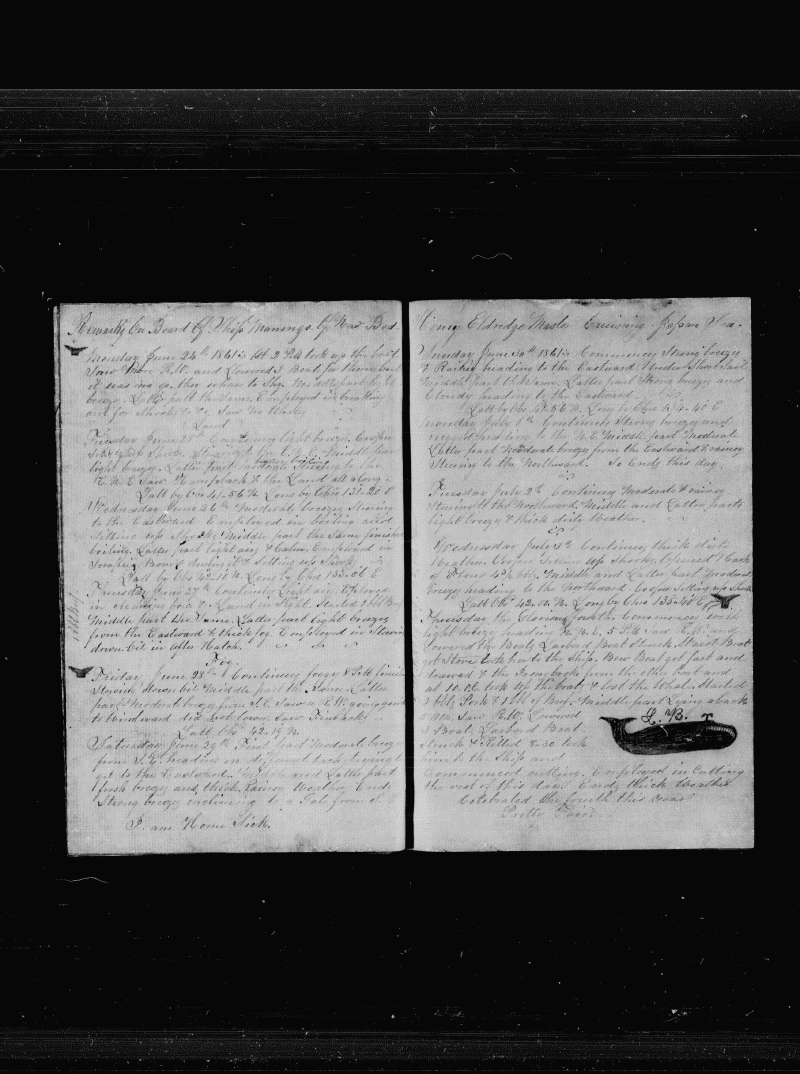 Remarks On Board Of Ship Marengo Of New Bed
Monday June 24th 1861 at 2 P.M. took up the boat
Saw more R.W. and Lowered 3 Boats for them but
it was no go, they when to Middle part light
breeze. Latter part the same Employed in breaking
out for Shooks &c. Saw No Whales
Land
Tuesday June 25th Continues light breeze. Cooper
Setting up Shooks Middle part
light breeze. Latter part Steering to the
E.N.E. Saw & the Land all along.
Latt by Obs 41-56 N. Long by Chro 131-21 E
Wednesday June 26th Moderate breeze Steering
to the Eastward Employed in boiling and
Setting up Shooks Middle part the Same finished
boiling. Latter part light airs & Calms Employed in
Scraping Bone and Setting up Shooks
Latt by Obs 42-11 N. Long by Chro 133-06 E
Thursday June 27th Continues Light airs Employed
in cleaning bone & Land in Sight. Started 1 bbl Beef
Middle part the Same. Latter part light breezes
from the Eastward & thick fog. Employed in Stowing
down oil in after Hatch.
Fog.
Friday June 28th Continues foggy 8 P.M. finished
Stowing down oil Middle part the Same Latter
part Moderate breeze from S.E. Saw a R.W. going quick
to windward did not lower, Saw Finback
Latt Obs 42-19 N.
Saturday June 29th First part Moderate breeze
from S.E. heading on different tacks trying to
get to the Eastward. Middle and Latter part
fresh breeze and thick Rainy Weather Ends
Strong breeze inclining to a Gale from S.
I am Home Sick.
Eldredge Master Cruising Japan Sea.
Sunday June 30th 1861 Commences Strong breeze
& Rainy heading to the Eastward Under Short Sail
Middle part the Same. Latter part Strong breeze and
Cloudy heading to the Eastward.
Latt by Obs 41-56 N. Long by Chro 134-40 E
Monday July 1st Continues Strong breeze and
rugged heading to the N.E. Middle part Moderate
Latter part Moderate breeze from the Eastward & rainey
Steering to the Northward. So Ends this day
Tuesday July 2nd Continues Moderate & rainey
Steering to the Northward, Middle and Latter parts
light breeze & thick dirty Weather.
Wednesday July 3rd Continues thick dirty
Weather. Cooper Setting up Shooks. Opened 1 Cask
of Flour 4¾ bbls. Middle and Latter part Moderate
breeze heading to the Northward Cooper Setting up Shooks
Latt Obs 42.02 N. Long by Chro 135-40 E
Thursday the Glorious fourth Commences with
light breeze heading N.N.E. 5 P.M. Saw R.W. and
Lowered the Boats Larbord Boat Struck Waist Boat
got Stove took her to the Ship, Bow Boat got fast and
from the other boat and
at 10.00 took up the boats & lost the Whale. Started
2 bbls Pork & 1 bbl of Beef. Middle part Lying aback
Saw R.W. Lowered
3 Boats Larbord Boat
Struck & Killed 8.30 took
him to the Ship and
L. B.
Commenced cutting. Employed in Cutting
the rest of this day. Ends thick Weather
Celebrated the fourth this year
Pretty Fair.